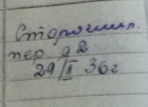 Сторожил.
пер. д 2
29/II 36 г